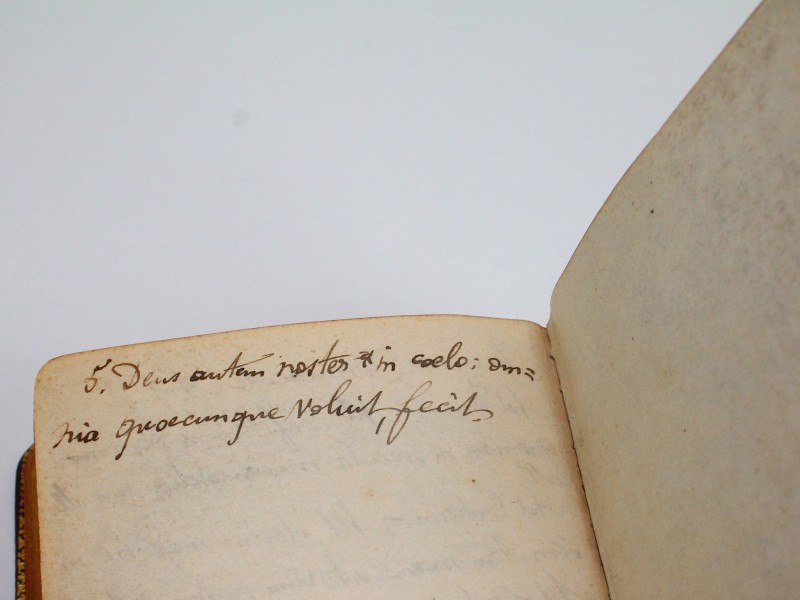 5. Deus autem noster * in coelo; om=
nia quaecunque voluit, fecit.